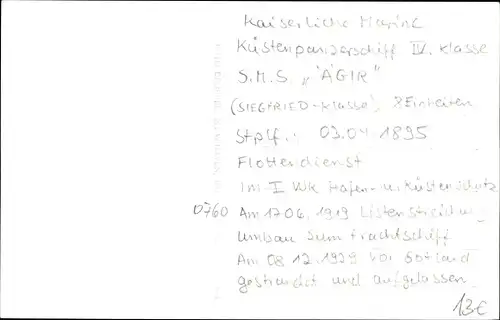 Kaiserliche Marine
Küstenpanzerschiff IV. Klasse
S.M.S. „ÄGIR"
(SIEGFRIED-Klasse), 8 Einheiten
Stplf.: 03.04.1895
Flottendienst
im I WK Hafen- u. Küstenschutz
0760 Am 17.06.1919 Listenstreichung
Umbau zum Frachtschiff
Am 08.12.1929 vor Gotland
gestrandet und aufgelassen
13€